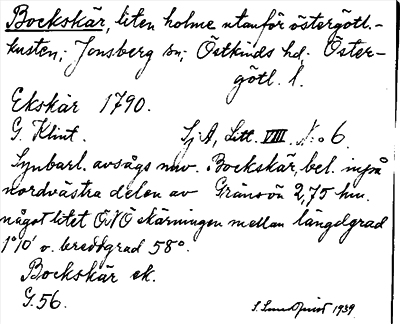 Bockskär, liten holme utanför östergötl.-
kusten; Jonsberg sn; Östkinds hd. Öster-
götl. l.
Ekskär 1790.
G. Klint. Sj:A, Litt. VIII. N:o 6.
Synbarl. avsågs nuv. Bockskär, bel. inpå
nordvästra delen av Gränsön 2,75 km.
något litet ÖNÖ skärningen mellan längdgrad
1°10' o. breddgrad 58°.
Bockskär ek.
G. 56.
1939